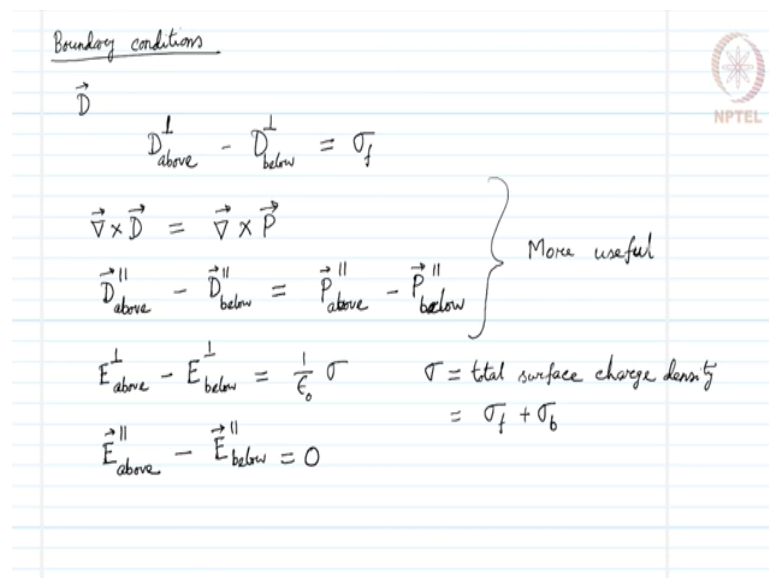 Boundary conditions
NPTEL
D⃗
D⊥above - D⊥below = σf
∇⃗ × D⃗ = ∇⃗ × P⃗
D⃗∥above - D⃗∥below = P⃗∥above - P⃗∥below
More useful
E⊥above - E⊥below = 1/ϵ₀ σ
σ = total surface charge density
= σf + σb
E⃗∥above - E⃗∥below = 0